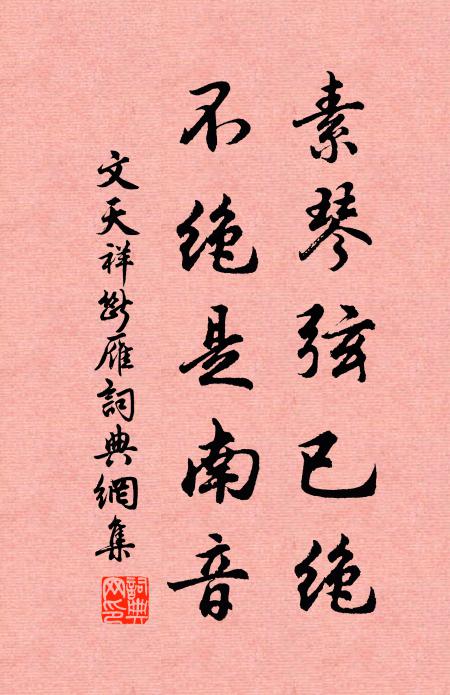 素琴弦已绝
不绝是南音
文天祥断雁詞典網集
詞典网印